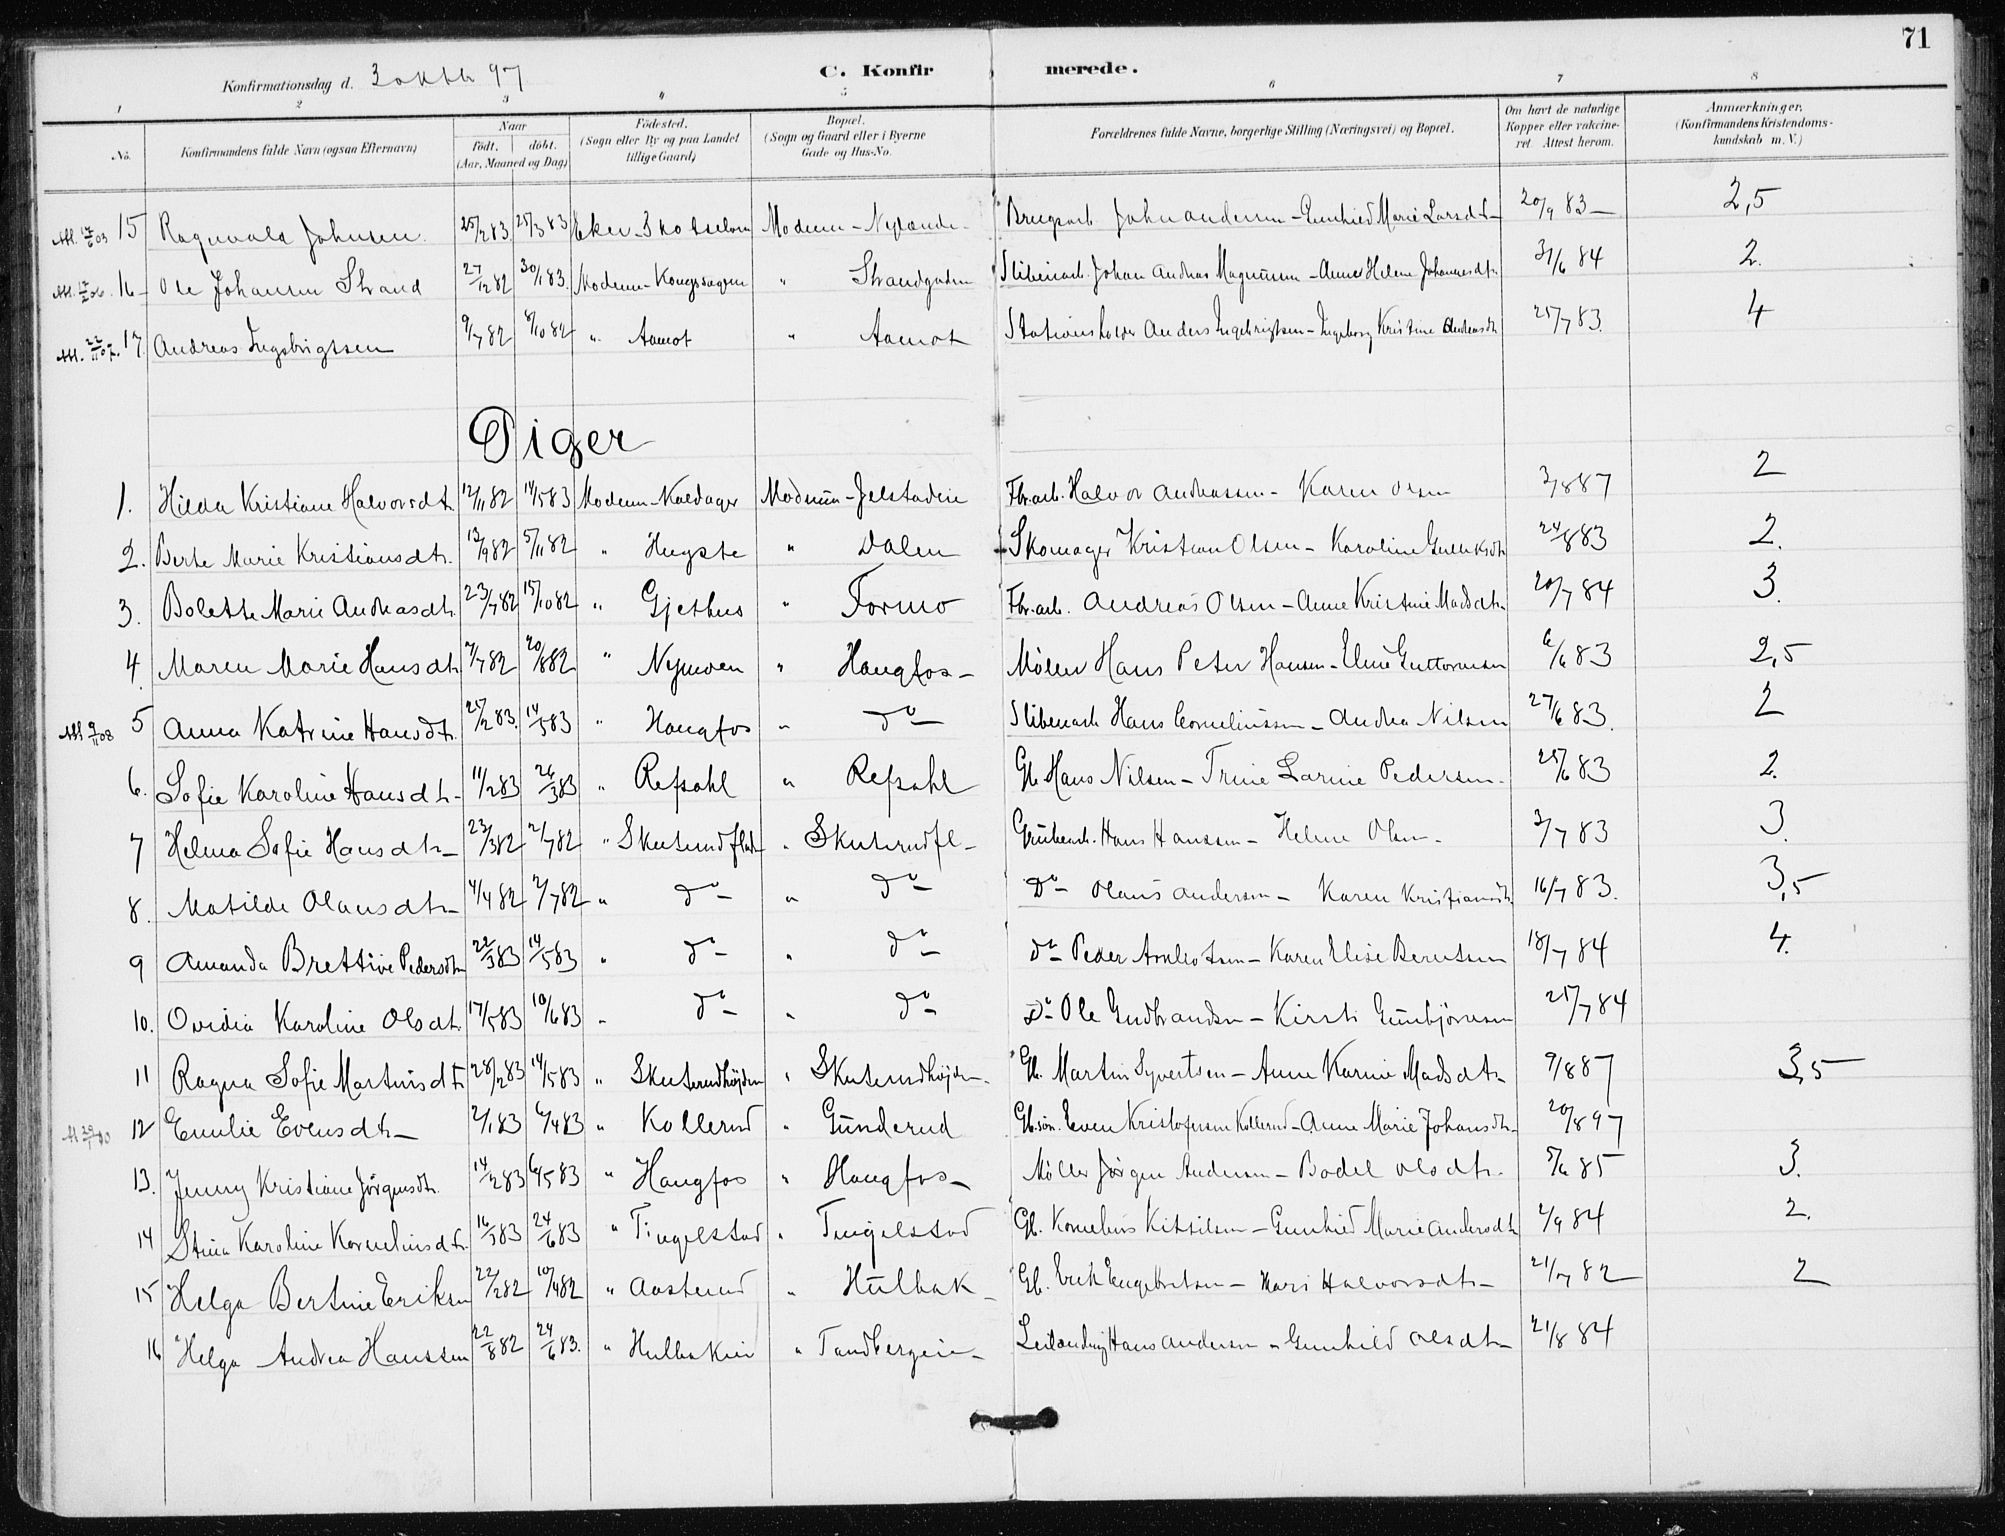 71
Konfirmationsdag d. 3 oktb 97 C. Konfirmerede.
1 2 3 4 5 6 7 8
No. Konfirmandens fulde Navn (ogsaa Efternavn) Naar født. døbt. (Aar, Maaned og Dag) Fødested. (Sogn eller By og paa Landet tillige Gaard) Bopæl. (Sogn og Gaard eller i Byerne Gade og Hus-No. Forældrenes fulde Navne, borgerlige Stilling (Næringsvei) og Bopæl. Om havt de naturlige Kopper eller vaccineret. Attest herom. Anmærkninger. (Konfirmandens Kristendomskundskab m. V.)
15 Ragnvald Johnsen 25/2 83 25/3 83 Eker - Modum - Nylænde Brugsarb. John Andersen - Gunhild Marie Larsdt 20/9 83 2,5
16 Ole Johansen Strand 27/12 82 30/1 83. Modum - Kongssagen " Strandgaden Sliberiarb. Johan Andreas Magnussen - Anne Helene Johannesdt. 31/6 84 2.
17 Andreas Ingebrigtsen 9/7 82 8/10 82 " Aamot " Aamot Stationsholder Anders Ingebrigtsen - Ingeborg Kristine Andreasdt 25/7 83. 4
Piger
1. Hilda Kristiane Halvorsdt. 12/11 82 14/5 83 Modum - Kaldager Modum - Jelstadeie Fbr.arb. Halvor Andreassen - Karen Olsen 3/8 87 2
2. Berte Marie Kristiansdt. 13/9 82 5/11 82 " Hugste " Dalen Skomager Kristian Olsen - Karoline Gulliksdt 24/8 83 2.
3. Bolette Marie Andreasdt. 23/7 82 15/10 82 " Gjethus " Formo Fbr.arb. Andreas Olsen - Anne Kristine Madsdt. 20/7 84 3.
4. Maren Marie Hansdt. 2/7 82 20/8 82 " Nymoen " Haugfos Møller Hans Peter Hansen - Eline Guttormsen 6/6 83 2,5
5 Anna Katrine Hansdt. 25/2 83. 14/5 83 " Haugfos " do Sliberiarb. Hans Corneliussen - Andrea Nilsen 27/6 83. 2
6. Sofie Karoline Hansdt. 11/2 83 26/3 83 " Refsahl " Refsahl Gb. Hans Nilsen - Trine Larine Pedersen 25/6 83 2.
7 Helma Sofie Hansdt. 23/3 82 2/7 82 " Skuterudflat. " Skuterudfl. Grubearb. Hans Hanssen - Helene Olsen 3/7 83 3.
8. Matilde Olausdt. 4/4 82 2/7 82 " do " do Do Olaus Andersen - Karen Kristiansdt 16/7 83. 3,5
9 Amanda Brettine Pedersdt. 22/3 83 14/5 83 " do " do do Peder - Karen Elise Berntsen 18/7 84 4.
10. Ovidia Karoline Olsdt. 17/5 83 10/6 83 " do " do Do Ole Gudbrandsen - Kirsti Gunbjørnsen 25/7 84
11 Ragna Sofie Martinsdt 28/2 83 14/5 83 " Skuterudhøjden " Skuterudhøjden Gb. Martin Syvertsen - Anne Karine Madsdt. 9/8 87 3,5
12 Emilie Evensdt. 2/1 83 6/4 83 " Kollerud " Gunderud Gb.søn. Even Kristofersen Kollerud - Anne Marie Johansdt. 20/8 97
13. Jenny Kristiane Jørgensdt. 14/2 83 6/5 83 " Haugfos " Haugfos Møller Jørgen Andersen - Bodel Olsdt. 5/6 85 3.
14 Stina Karoline Korneliusdt. 16/3 83 24/6 83 " Tingelstad " Tingelstad Gb. Kornelius Kittilsen - Gunhild Marie Andersdt 2/9 84 2.
15 Helga Bertine Eriksen 22/2 82 10/4 82 " Aasterud " Hulbak Gb. Erik Engebretsen - Mari Halvorsdt. 21/7 82 2
16 Helga Andrea Hanssen 22/8 82 24/6 83. " Hulbakeie " Tandbergeie Leilænding Hans Andersen - Gunhild Olsdt. 21/8 84